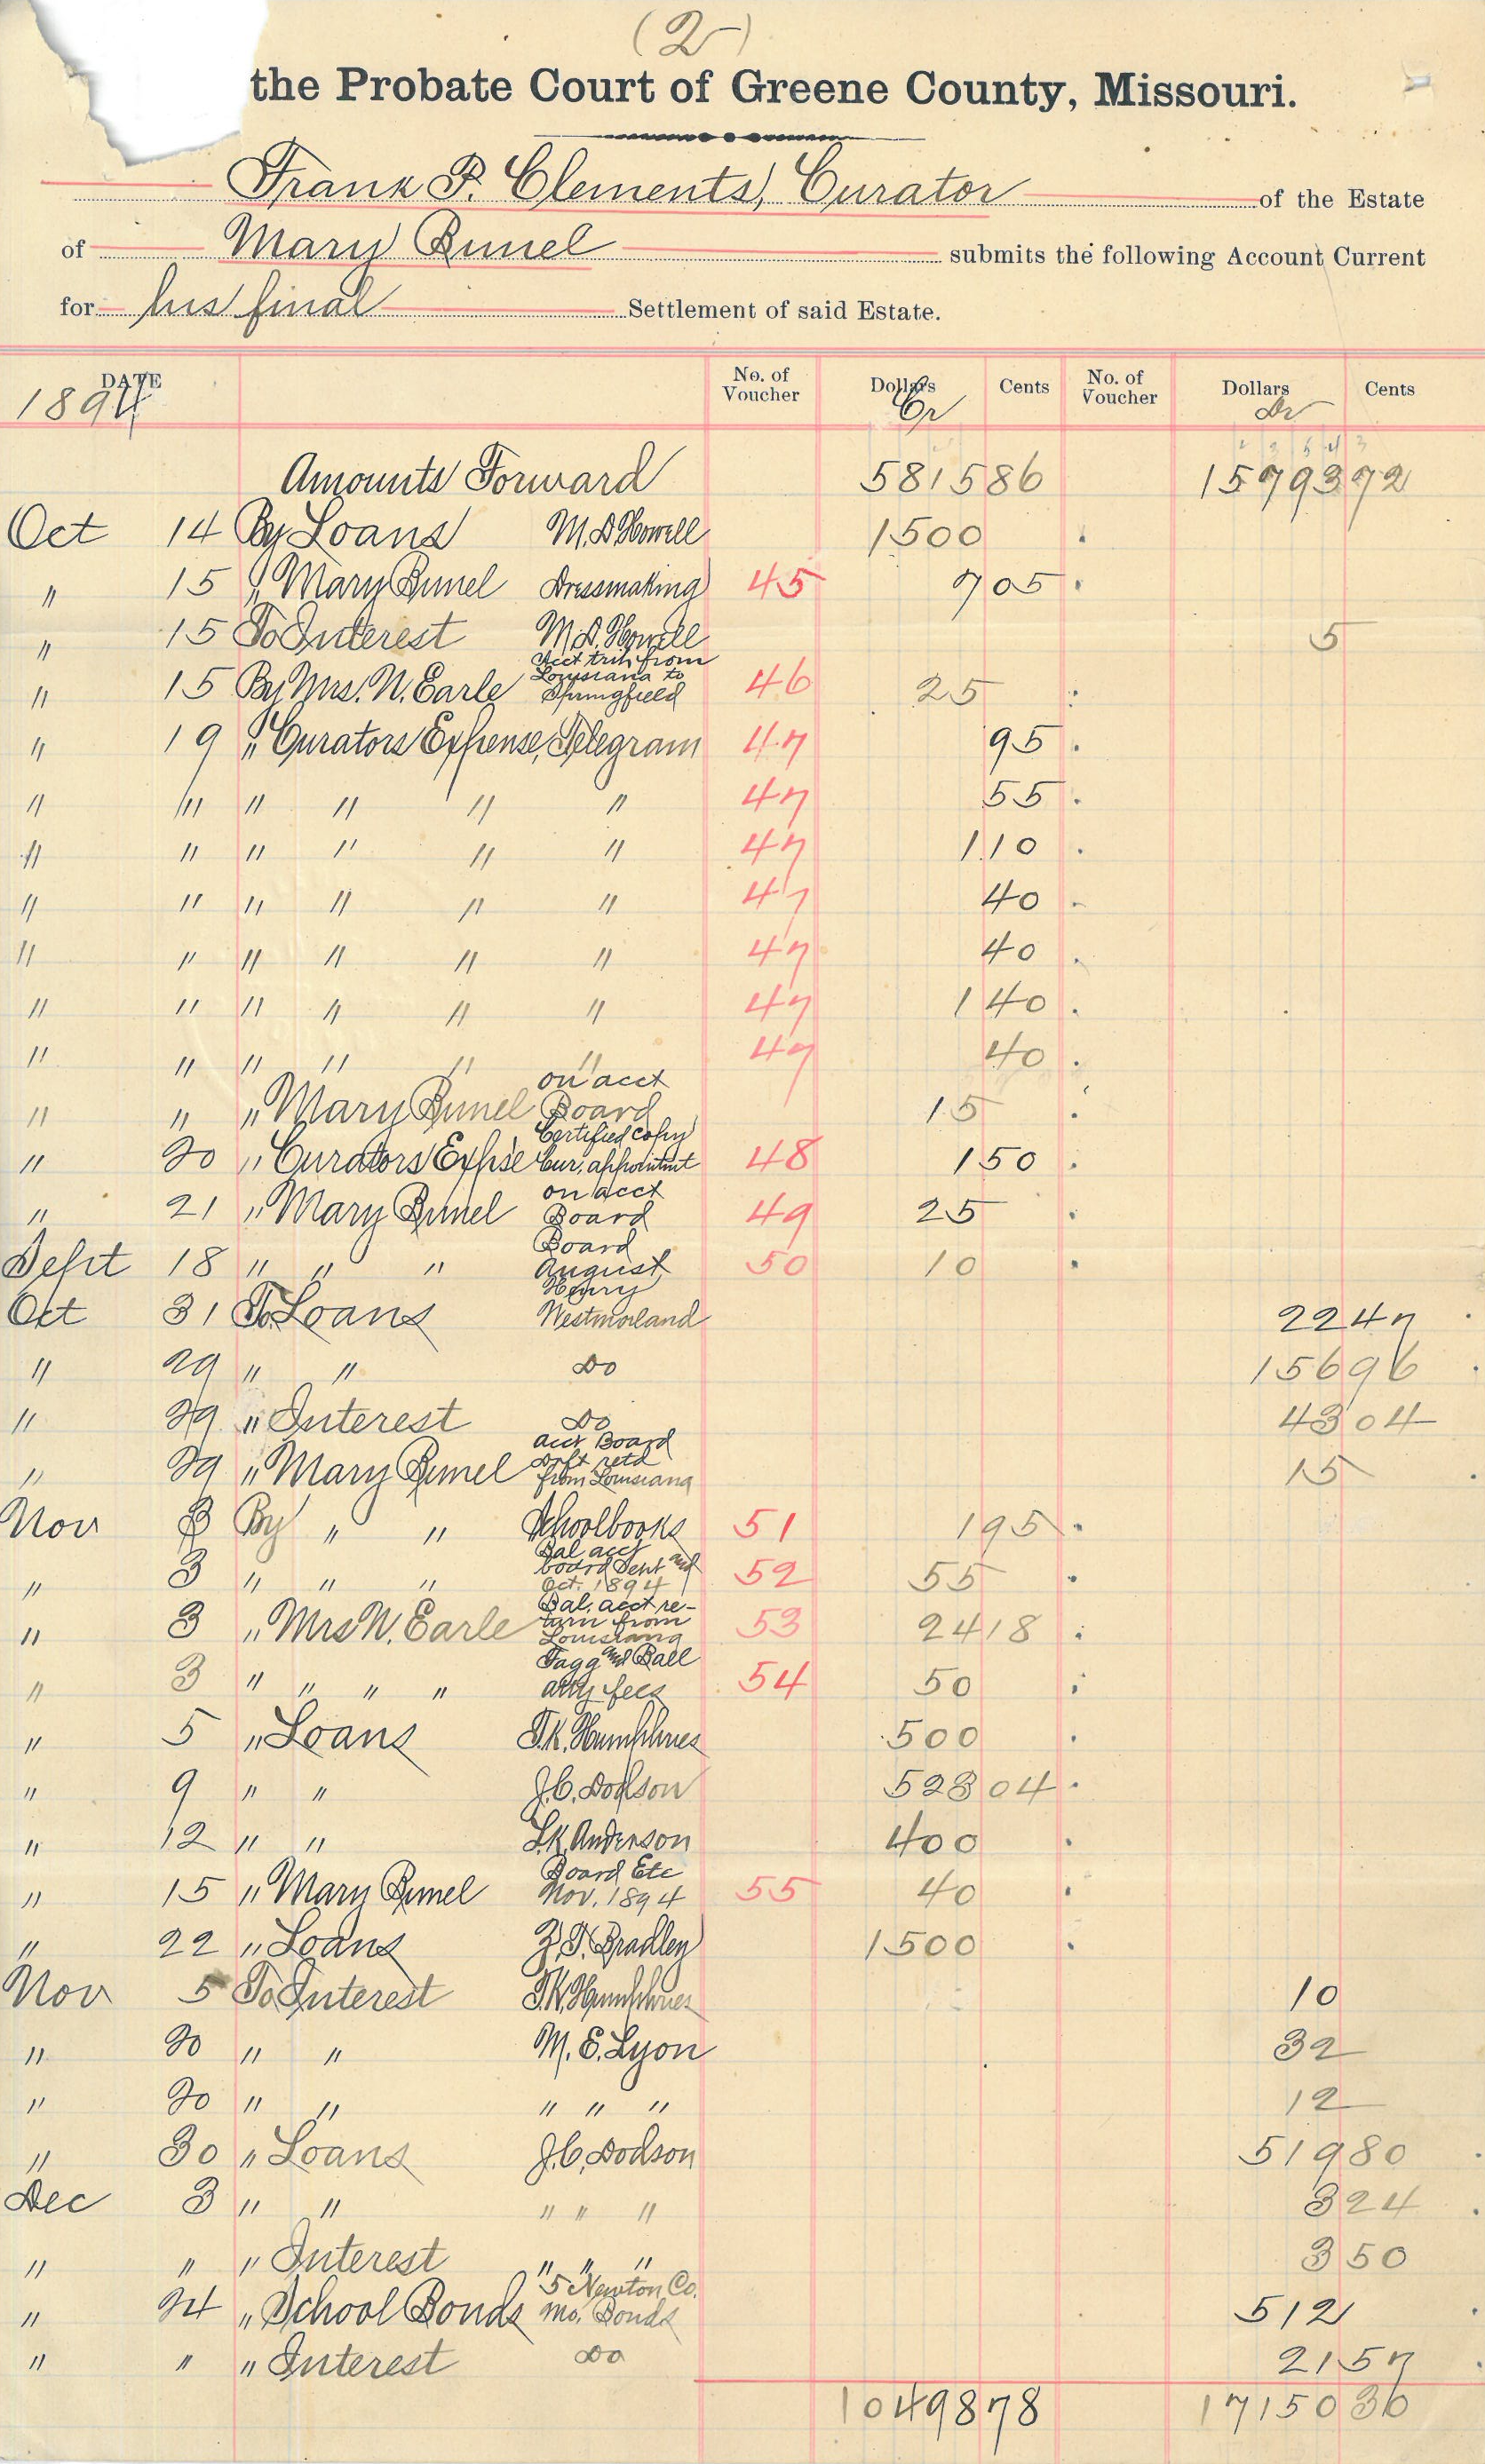 (2)
the Probate Court of Greene County, Missouri.
Frank P. Clements, Curator of the Estate
of Mary Bunel submits the following Account Current
for his final Settlement of said Estate.
DATE No. of Voucher Dollars Cents No. of Voucher Dollars Cents
1894 Cr Dr
Amounts Forward 5815 86 15793 72
Oct 14 By Loans M. D. Howell 1500
" 15 " Mary Bunel Dressmaking 45 7 05
" 15 To Interest M. D. Howell 5
" 15 By Mrs. N. Earle Acct trip from Louisiana to Springfield 46 25
" 19 " Curators Expense, Telegram 47 95
" " " " " " 47 55
" " " " " " 47 1 10
" " " " " " 47 40
" " " " " " 47 40
" " " " " " 47 1 40
" " " " " " 47 40
" " " Mary Bunel on acct Board 15
" 20 " Curators Expse Certified copy Cur. appointmt 48 1 50
" 21 " Mary Bunel on acct Board 49 25
Sept 18 " " " Board August 50 10
Oct 31 To Loans Henry Westmorland 22 47
" 29 " " Do 156 96
" 29 " Interest Do 43 04
" 29 " Mary Bunel acct Board Drft retd from Louisiana 15
Nov 3 By " " Schoolbooks 51 1 95
" 3 " " " Bal acct board Sept and Oct. 1894 52 55
" 3 " Mrs N. Earle Bal. acct re- turn from Louisiana 53 24 18
" 3 " " " " Tagg and Ball atty fees 54 50
" 5 " Loans T. K. Humphries 500
" 9 " " J. C. Dodson 523 04
" 12 " " L. K. Anderson 400
" 15 " Mary Bunel Board Etc Nov. 1894 55 40
" 22 " Loans Z. T. Bradley 1500
Nov 5 To Interest T. K. Humphries 10
" 20 " " M. E. Lyon 32
" 20 " " " " " 12
" 30 " Loans J. C. Dodson 519 80
Dec 3 " " " " " 3 24
" " " Interest " " " 3 50
" 24 " School Bonds 5 Newton Co. Mo. Bonds 512
" " " Interest Do 21 57
10498 78 17150 30